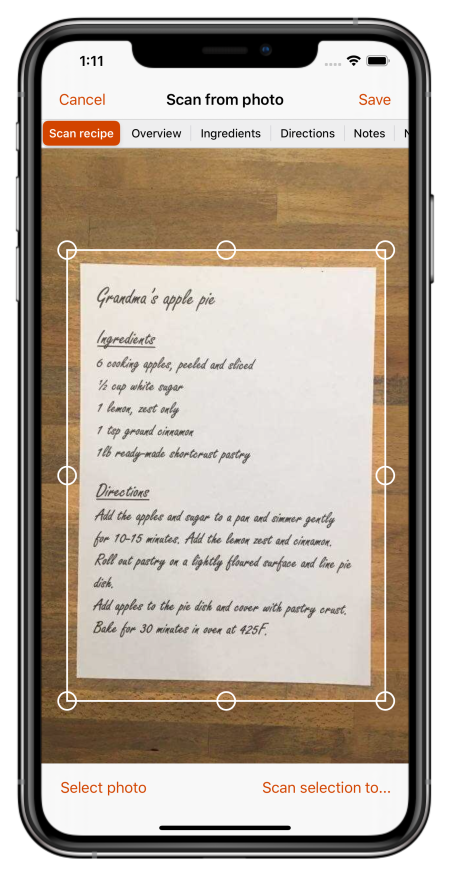 1:11
Cancel Scan from photo Save
Scan recipe Overview Ingredients Directions Notes N
Grandma's apple pie
Ingredients
6 cooking apples, peeled and sliced
½ cup white sugar
1 lemon, zest only
1 tsp ground cinnamon
1lb ready-made shortcrust pastry
Directions
Add the apples and sugar to a pan and simmer gently
for 10-15 minutes. Add the lemon zest and cinnamon.
Roll out pastry on a lightly floured surface and line pie
dish.
Add apples to the pie dish and cover with pastry crust.
Bake for 30 minutes in oven at 425F.
Select photo Scan selection to...